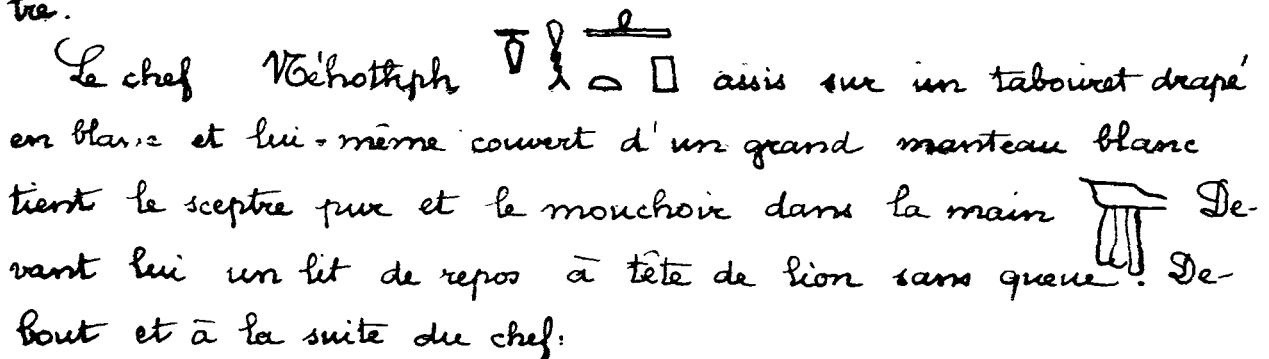 tre.
Le chef Néhothph assis sur un tabouret drapé
en blanc et lui-même couvert d'un grand manteau blanc
tient le sceptre pur et le mouchoir dans la main De-
vant lui un lit de repos à tête de lion sans queue. De-
bout et à la suite du chef: